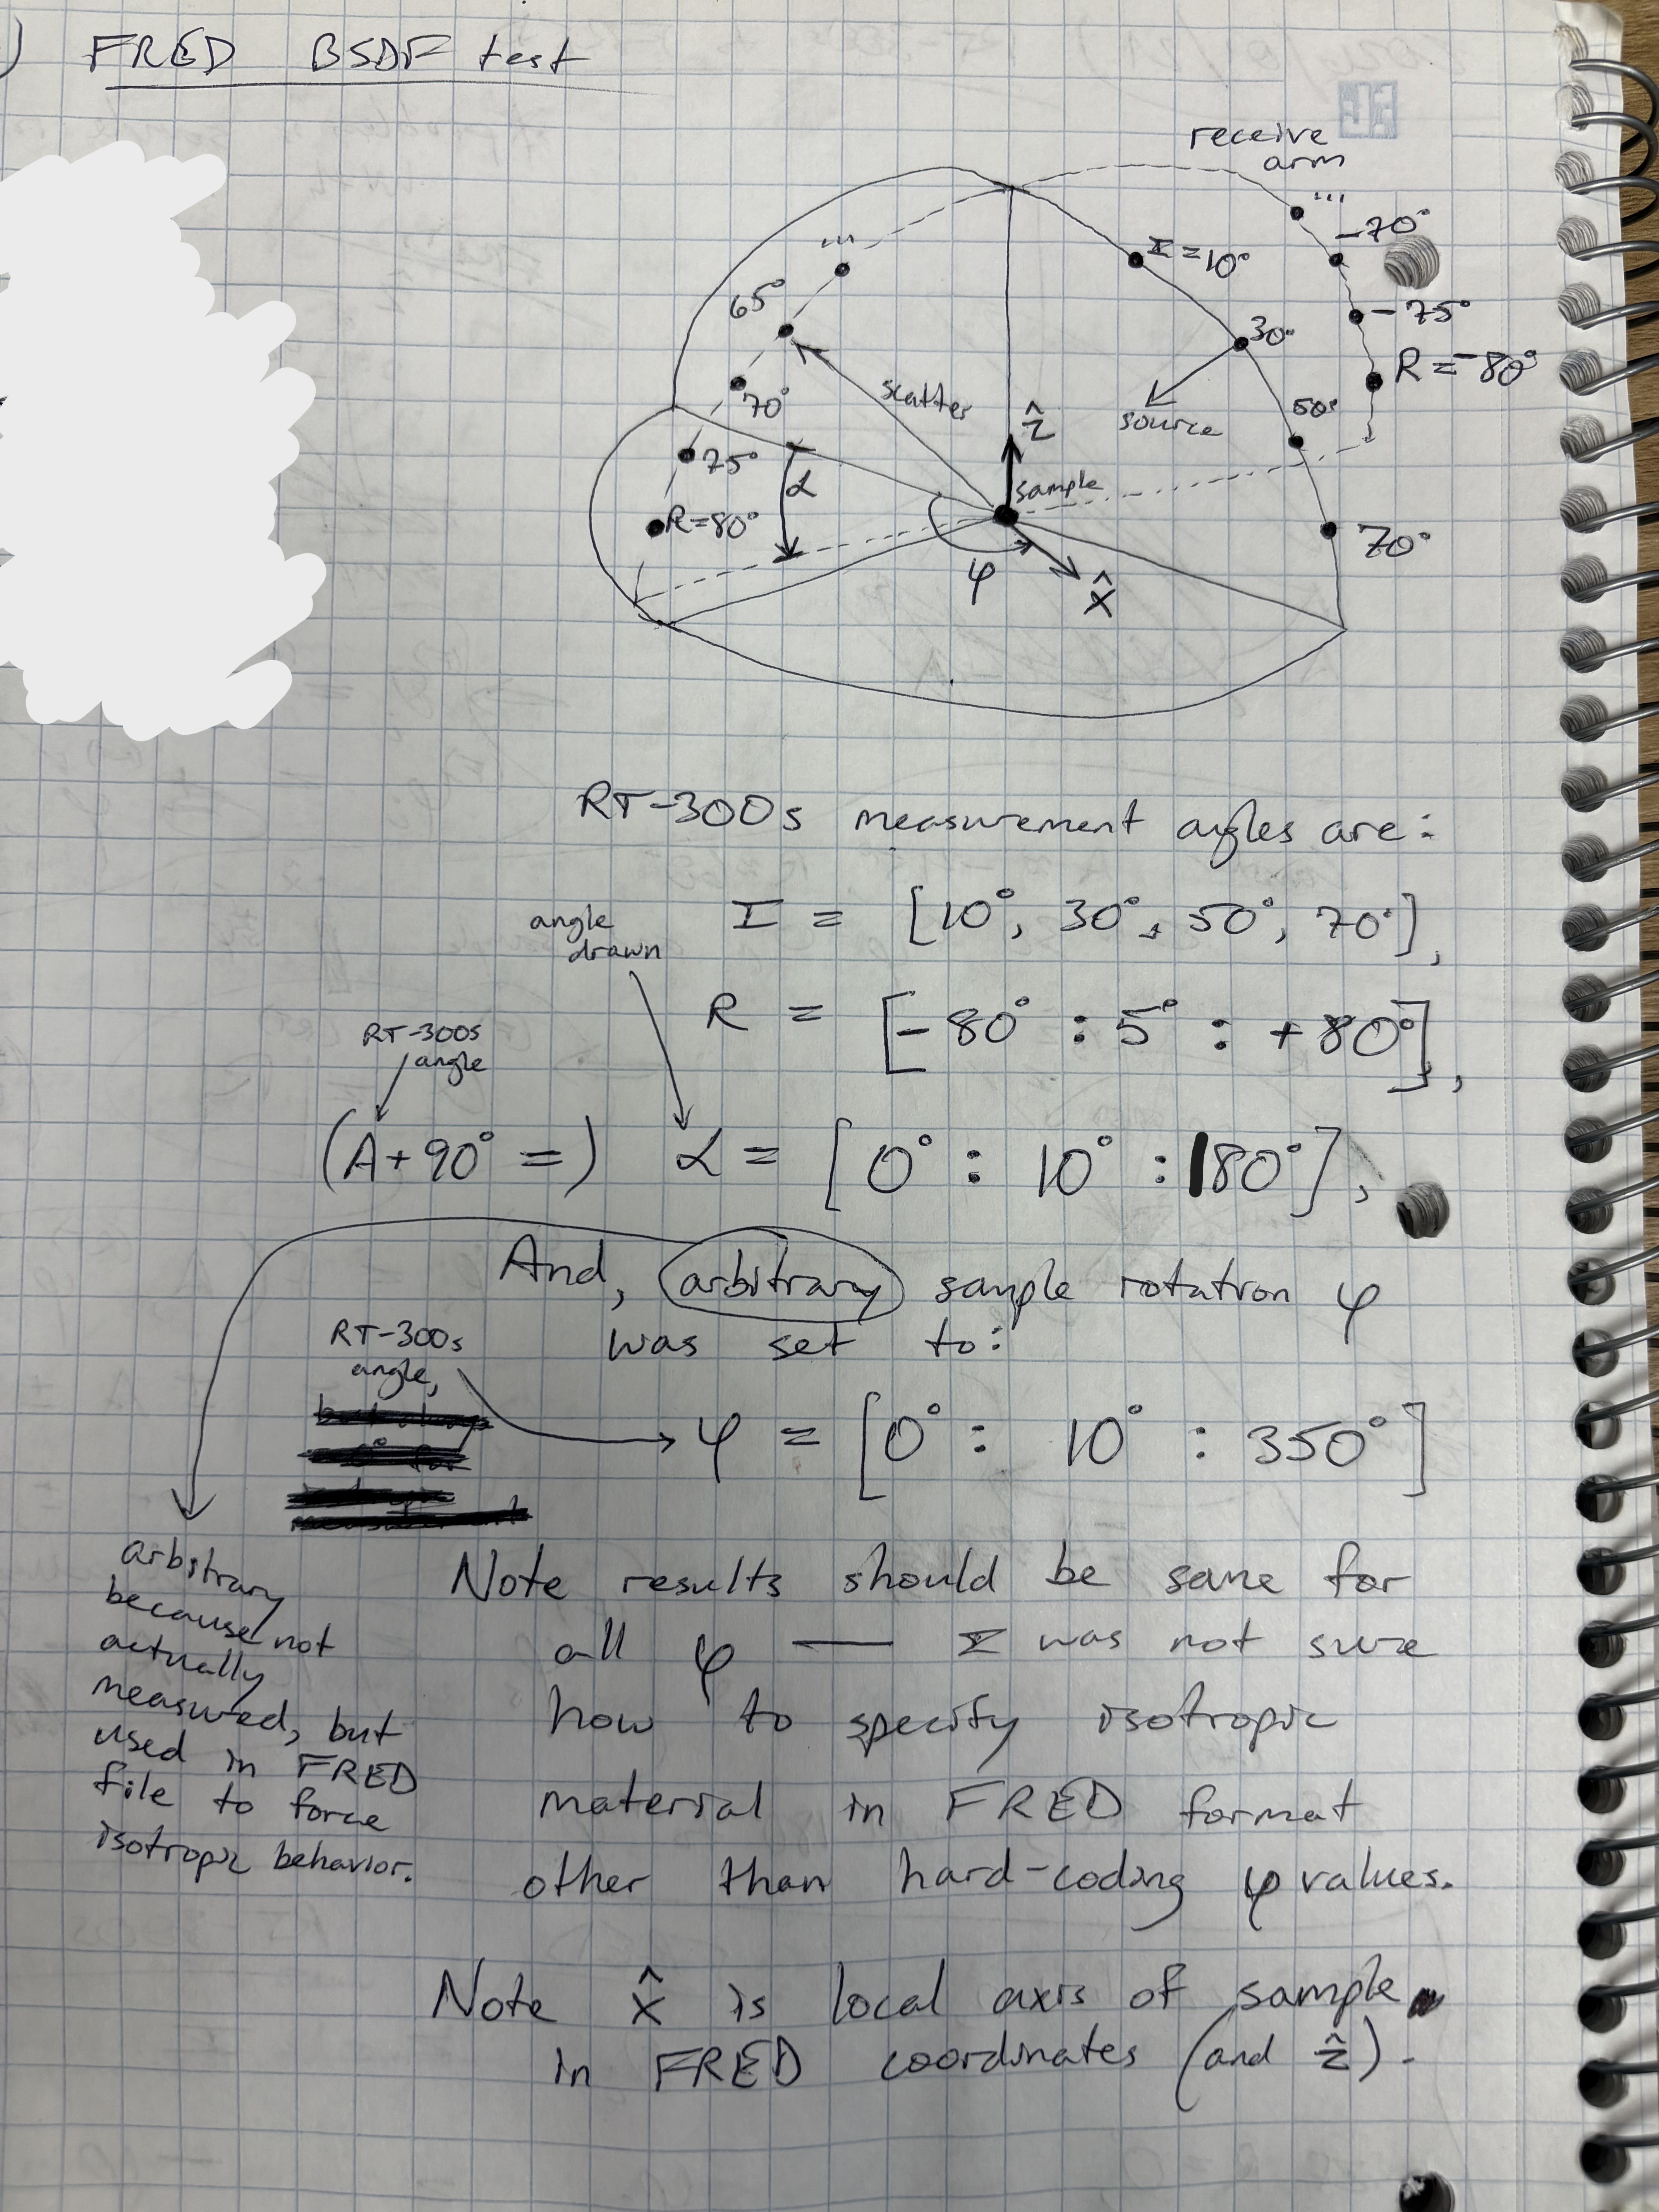 ) FRED BSDF test
receive
arm
...
-70°
I=10°
...
65°
30°
-75°
R=-80°
scatter
70°
50°
source
ẑ
75°
α
sample
R=80°
70°
φ
x̂
RT-300s measurement angles are:
angle
drawn
I = [10°, 30°, 50°, 70°],
R = [-80° : 5° : +80°],
RT-300s
angle
(A+90° =) α = [0° : 10° : 180°],
And, arbitrary sample rotation φ
was set to:
RT-300s
angle,
φ = [0° : 10° : 350°]
arbitrary
because not
actually
measured, but
used in FRED
file to force
isotropic behavior.
Note results should be same for
all φ — I was not sure
how to specify isotropic
material in FRED format
other than hard-coding φ values.
Note x̂ is local axis of sample
in FRED coordinates (and ẑ).